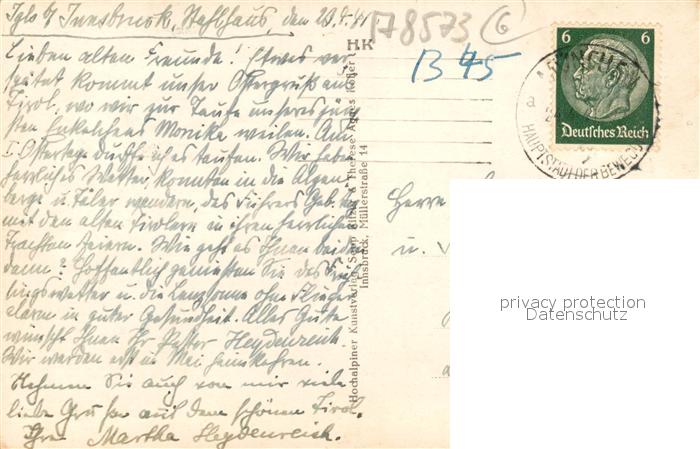 Igls b/ Innsbruck, Stahlhaus, den 23.4.41
Lieben alten Freunde! Etwas ver-
spätet kommt unser Ostergruß aus
Tirol, wo wir zur Taufe unseres jüng-
sten Enkelchens Monika weilen. Am
I. Ostertage durfte ich es taufen. Wir haben
herrliches Wetter, konnten in die Alpen-
berge u. Täler wandern, des Führers Geb.tag
mit den alten Tirolern in ihren herrlichen
Trachten feiern. Wie geht es Ihnen beiden
denn? Hoffentlich genießen Sie das Früh-
lingswetter u. die Lenzsonne ohne Flieger-
alarm in guter Gesundheit. Alles Gute
wünscht Ihnen Ihr Pastor Heydenreich.
Wir werden erst im Mai heimkehren.
Nehmen Sie auch von mir viele
liebe Grüße aus dem schönen Tirol.
Ihre Martha Heydenreich.
HK
Hochalpiner Kunstverlag Sepp & Therese Agnes Höfler
Innsbruck, Müllerstraße 14
178573 6
B 45
6 6
Deutsches Reich
MÜNCHEN
a
HAUPTSTADT DER BEWEGUNG
Herrn
u.
privacy protection
Datenschutz